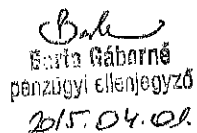 Barta Gáborné
pénzügyi ellenjegyző
2015.04.01.